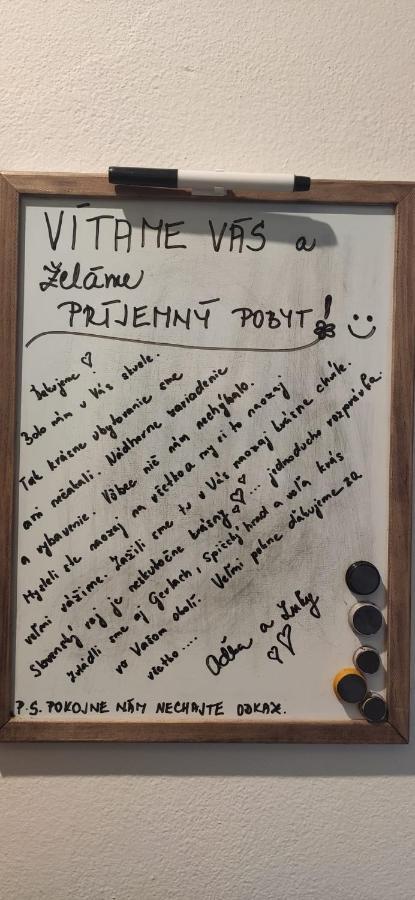 VÍTAME VÁS a
želáme
PRÍJEMNÝ POBYT!
Ďakujeme ♡
Bolo nám u Vás skvele.
Tak krásne ubytovanie sme
ani nečakali. Nádherne zariadenie
a vybavenie. Vôbec nič nám nechýbalo.
Mysleli ste naozaj na všetko a my si to naozaj
veľmi vážime. Zažili sme tu u Vás naozaj krásne chvíle.
Slovenský raj je neskutočne krásny ♡... jednoducho rozprávka.
zvládli sme aj Gerlach, Spišský hrad a veľa krás
vo Vašom okolí. Veľmi pekne ďakujeme za
všetko....
a
P.S. POKOJNE NÁM NECHAJTE ODKAZ.